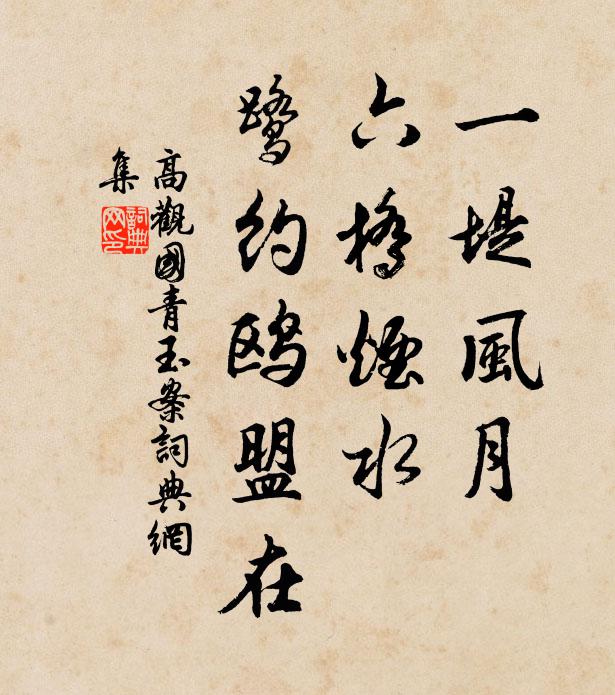 一堤風月
六橋煙水
鷺約鷗盟在
高觀國青玉案詞典網
集
詞典
網印